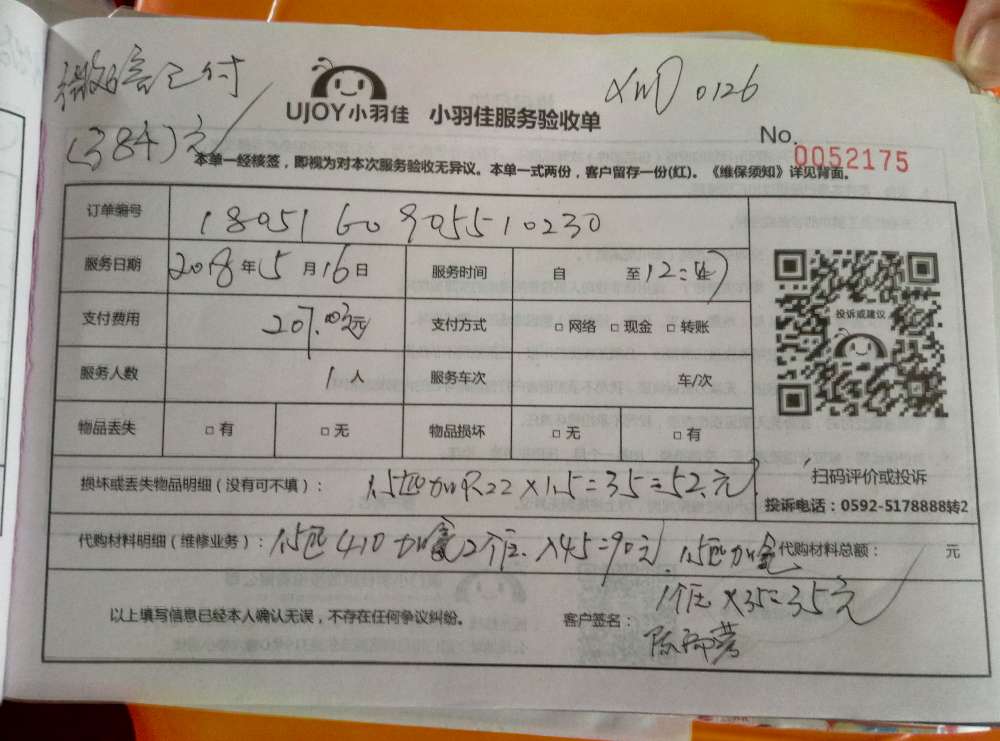 微好客已付
(384)元
UJOY小羽佳 小羽佳服务验收单
XMD 0126
No. 0052175
本单一经核签，即视为对本次服务验收无异议。本单一式两份，客户留存一份(红)。《维保须知》详见背面。
订单编号 18051609055510230
服务日期 2018年5月16日 服务时间 自 至12:
支付费用 207.00元 支付方式 □网络 □现金 □转账
服务人数 1人 服务车次 车/次
物品丢失 □有 □无 物品损坏 □无 □有
投诉或建议
扫码评价或投诉
投诉电话：0592-5178888转2
损坏或丢失物品明细（没有可不填）： 1.5匹加R22×1.5=35=52.元
代购材料明细（维修业务）： 1.5匹410加氟2个压×45=90元 1.5匹加氟 代购材料总额： 元
1个压×35=35元
以上填写信息已经本人确认无误，不存在任何争议纠纷。 客户签名：